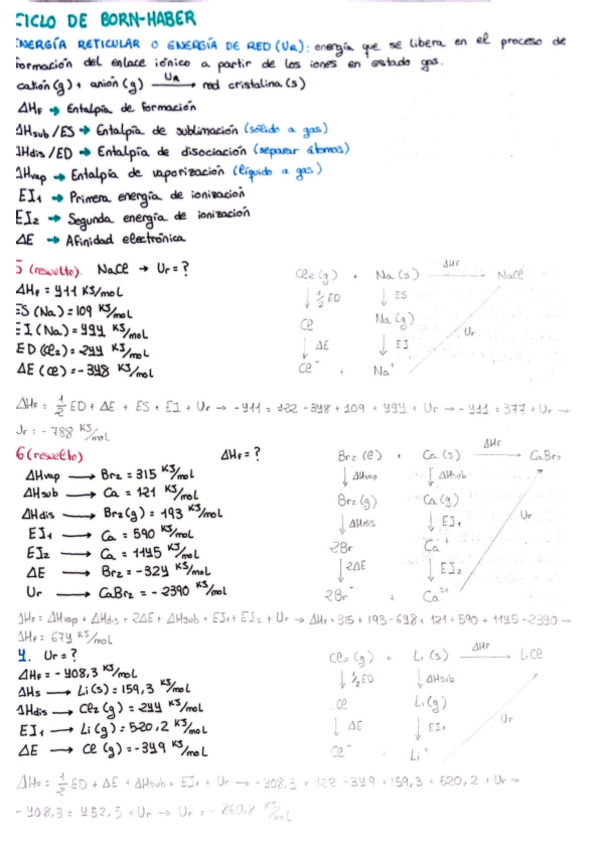 CICLO DE BORN-HABER
ENERGÍA RETICULAR O ENERGÍA DE RED (UR): energía que se libera en el proceso de
formación del enlace iónico a partir de los iones en estado gas.
catión (g) + anión (g) —UR→ red cristalina (s)
ΔHf → Entalpía de formación
ΔHsub/ES → Entalpía de sublimación (sólido a gas)
ΔHdis/ED → Entalpía de disociación (separar átomos)
ΔHvap → Entalpía de vaporización (líquido a gas)
EI1 → Primera energía de ionización
EI2 → Segunda energía de ionización
ΔE → Afinidad electrónica
5 (resuelto). NaCl → Ur = ?
ΔHf = 411 KJ/mol
ES (Na) = 109 KJ/mol
EI (Na) = 494 KJ/mol
ED (Cl2) = 244 KJ/mol
ΔE (Cl) = -348 KJ/mol
Cl2 (g) + Na (s) —ΔHf→ NaCl
↓ 1/2 ED ↓ ES
Cl Na (g) Ur
↓ ΔE ↓ EI
Cl- + Na+
ΔHf = 1/2 ED + ΔE + ES + EI + Ur → -411 = 122 - 348 + 109 + 494 + Ur → -411 = 377 + Ur →
Ur = -788 KJ/mol
6 (resuelto) ΔHf = ?
ΔHvap → Br2 = 315 KJ/mol
ΔHsub → Ca = 121 KJ/mol
ΔHdis → Br2(g) = 193 KJ/mol
EI1 → Ca = 590 KJ/mol
EI2 → Ca = 1145 KJ/mol
ΔE → Br2 = -324 KJ/mol
Ur → CaBr2 = -2390 KJ/mol
Br2 (l) + Ca (s) —ΔHf→ CaBr2
↓ ΔHvap ↓ ΔHsub
Br2 (g) Ca (g)
↓ ΔHdis ↓ EI1 Ur
2Br Ca+
↓ 2ΔE ↓ EI2
2Br- + Ca2+
ΔHf = ΔHvap + ΔHdis + 2ΔE + ΔHsub + EI1 + EI2 + Ur → ΔHf = 315 + 193 - 648 + 121 + 590 + 1145 - 2390 →
ΔHf = 674 KJ/mol
4. Ur = ?
ΔHf = -408,3 KJ/mol
ΔHs → Li (s) = 159,3 KJ/mol
ΔHdis → Cl2 (g) = 244 KJ/mol
EI1 → Li (g) = 520,2 KJ/mol
ΔE → Cl (g) = -349 KJ/mol
Cl2 (g) + Li (s) —ΔHf→ LiCl
↓ 1/2 ED ↓ ΔHsub
Cl Li (g) Ur
↓ ΔE ↓ EI1
Cl- Li+
ΔHf = 1/2 ED + ΔE + ΔHsub + EI1 + Ur → -408,3 = 122 - 349 + 159,3 + 520,2 + Ur →
-408,3 = 452,5 + Ur → Ur = -860,8 KJ/mol